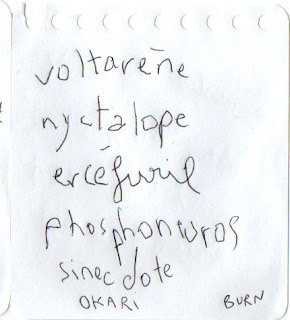 voltareñe
nyctalope
ercéfuril
phosphonuros
sinecdote
OKARI BURN